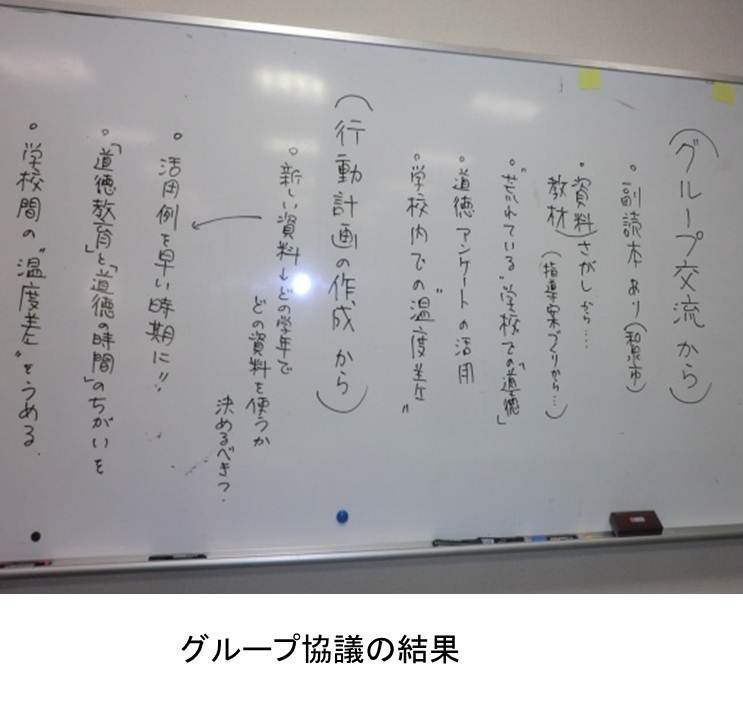 (グループ交流から)
。副読本あり(和泉市)
。資料さがしから・・・・
教材(指導案づくりから・・・)
。"荒れている"学校での「道徳」
。道徳アンケートの活用
。学校内での"温度差"
(行動計画の作成から)
。新しい資料→どの学年で
どの資料を使うか
決めるべき?
。活用例を早い時期に!!
。「道徳教育」と「道徳の時間」のちがいを
。学校間の"温度差"をうめる.
グループ協議の結果